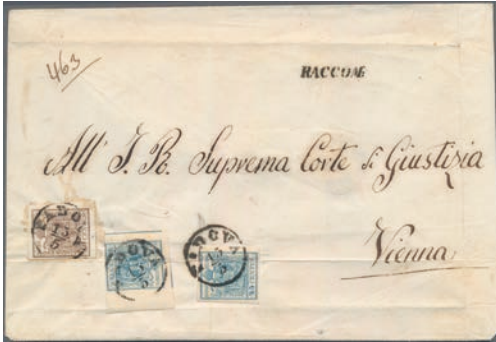 463
RACCOM
All' I. R. Suprema Corte di Giustizia
Vienna
PADOVA